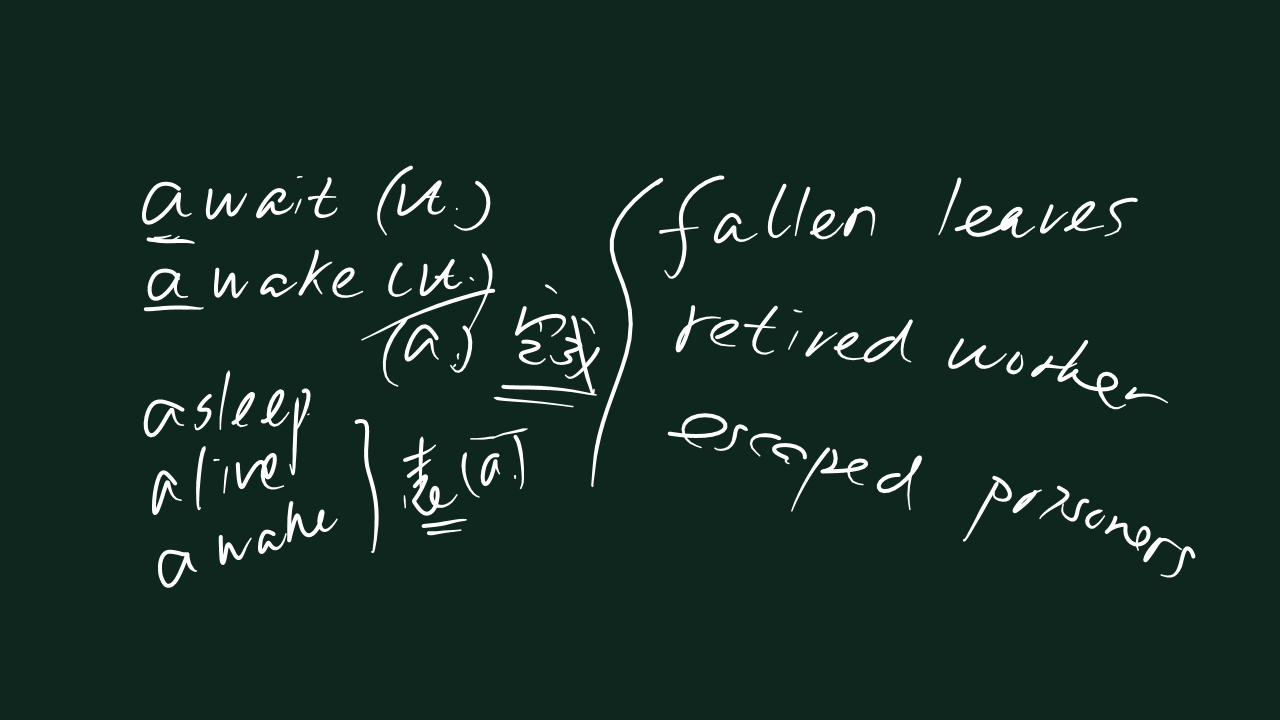 await (vt.)
awake (vt.)
(a.)
asleep
alive
awake
表 (a.)
fallen leaves
retired worker
escaped prisoners